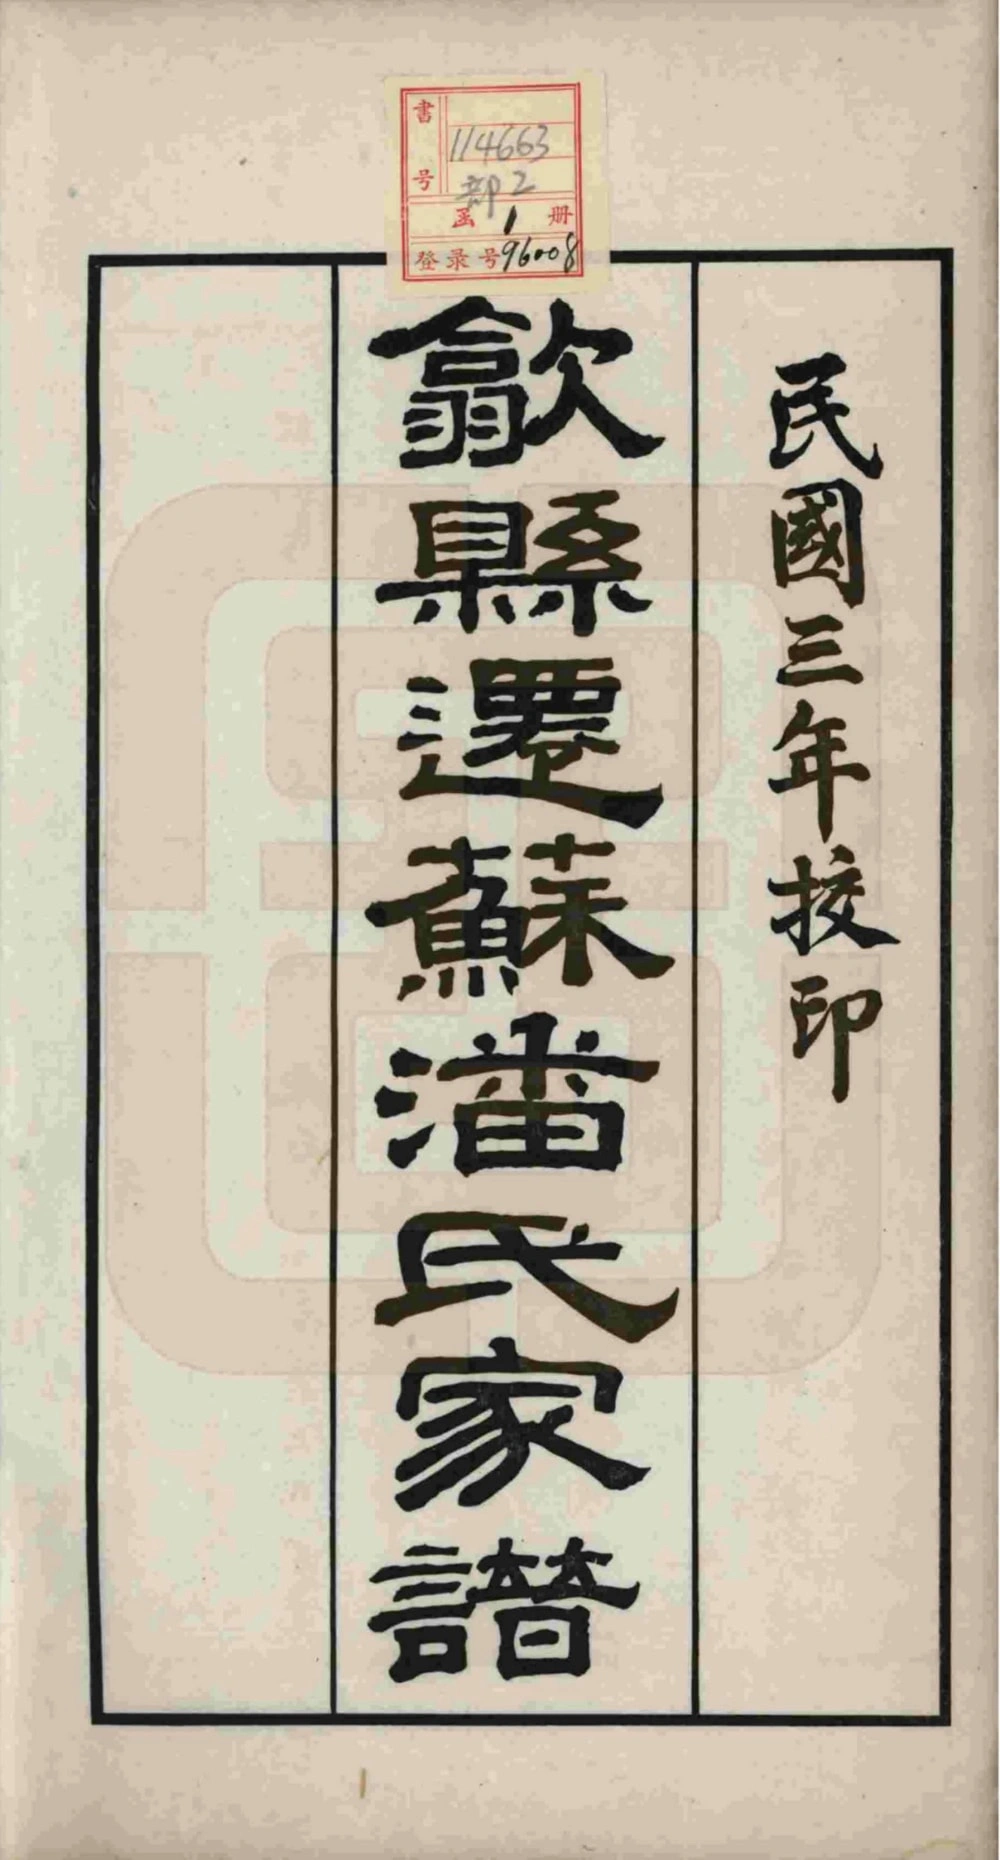 書号 114663
部2
函 1 册
登录号 96008
民國三年挍印
歙縣遷蘇潘氏家譜